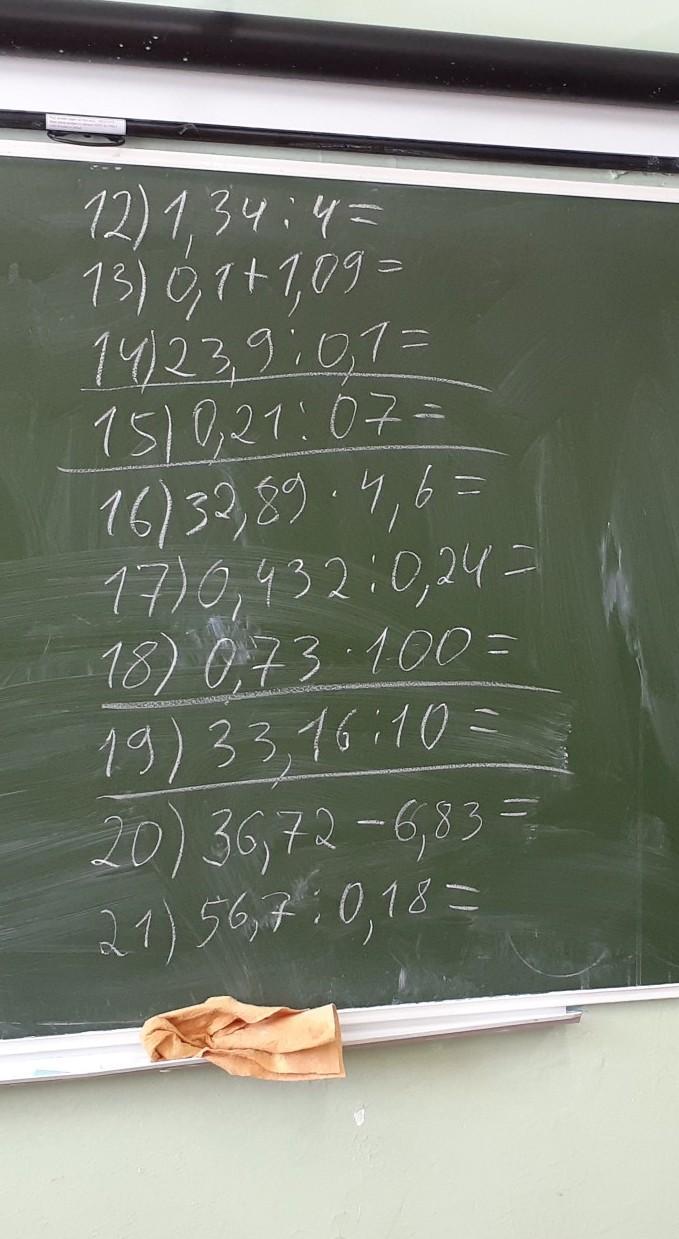 12) 1,34 : 4 =
13) 0,1 + 1,09 =
14) 23,9 : 0,1 =
15) 0,21 : 07 =
16) 32,89 · 4,6 =
17) 0,432 : 0,24 =
18) 0,73 · 100 =
19) 33,16 : 10 =
20) 36,72 - 6,83 =
21) 56,7 : 0,18 =